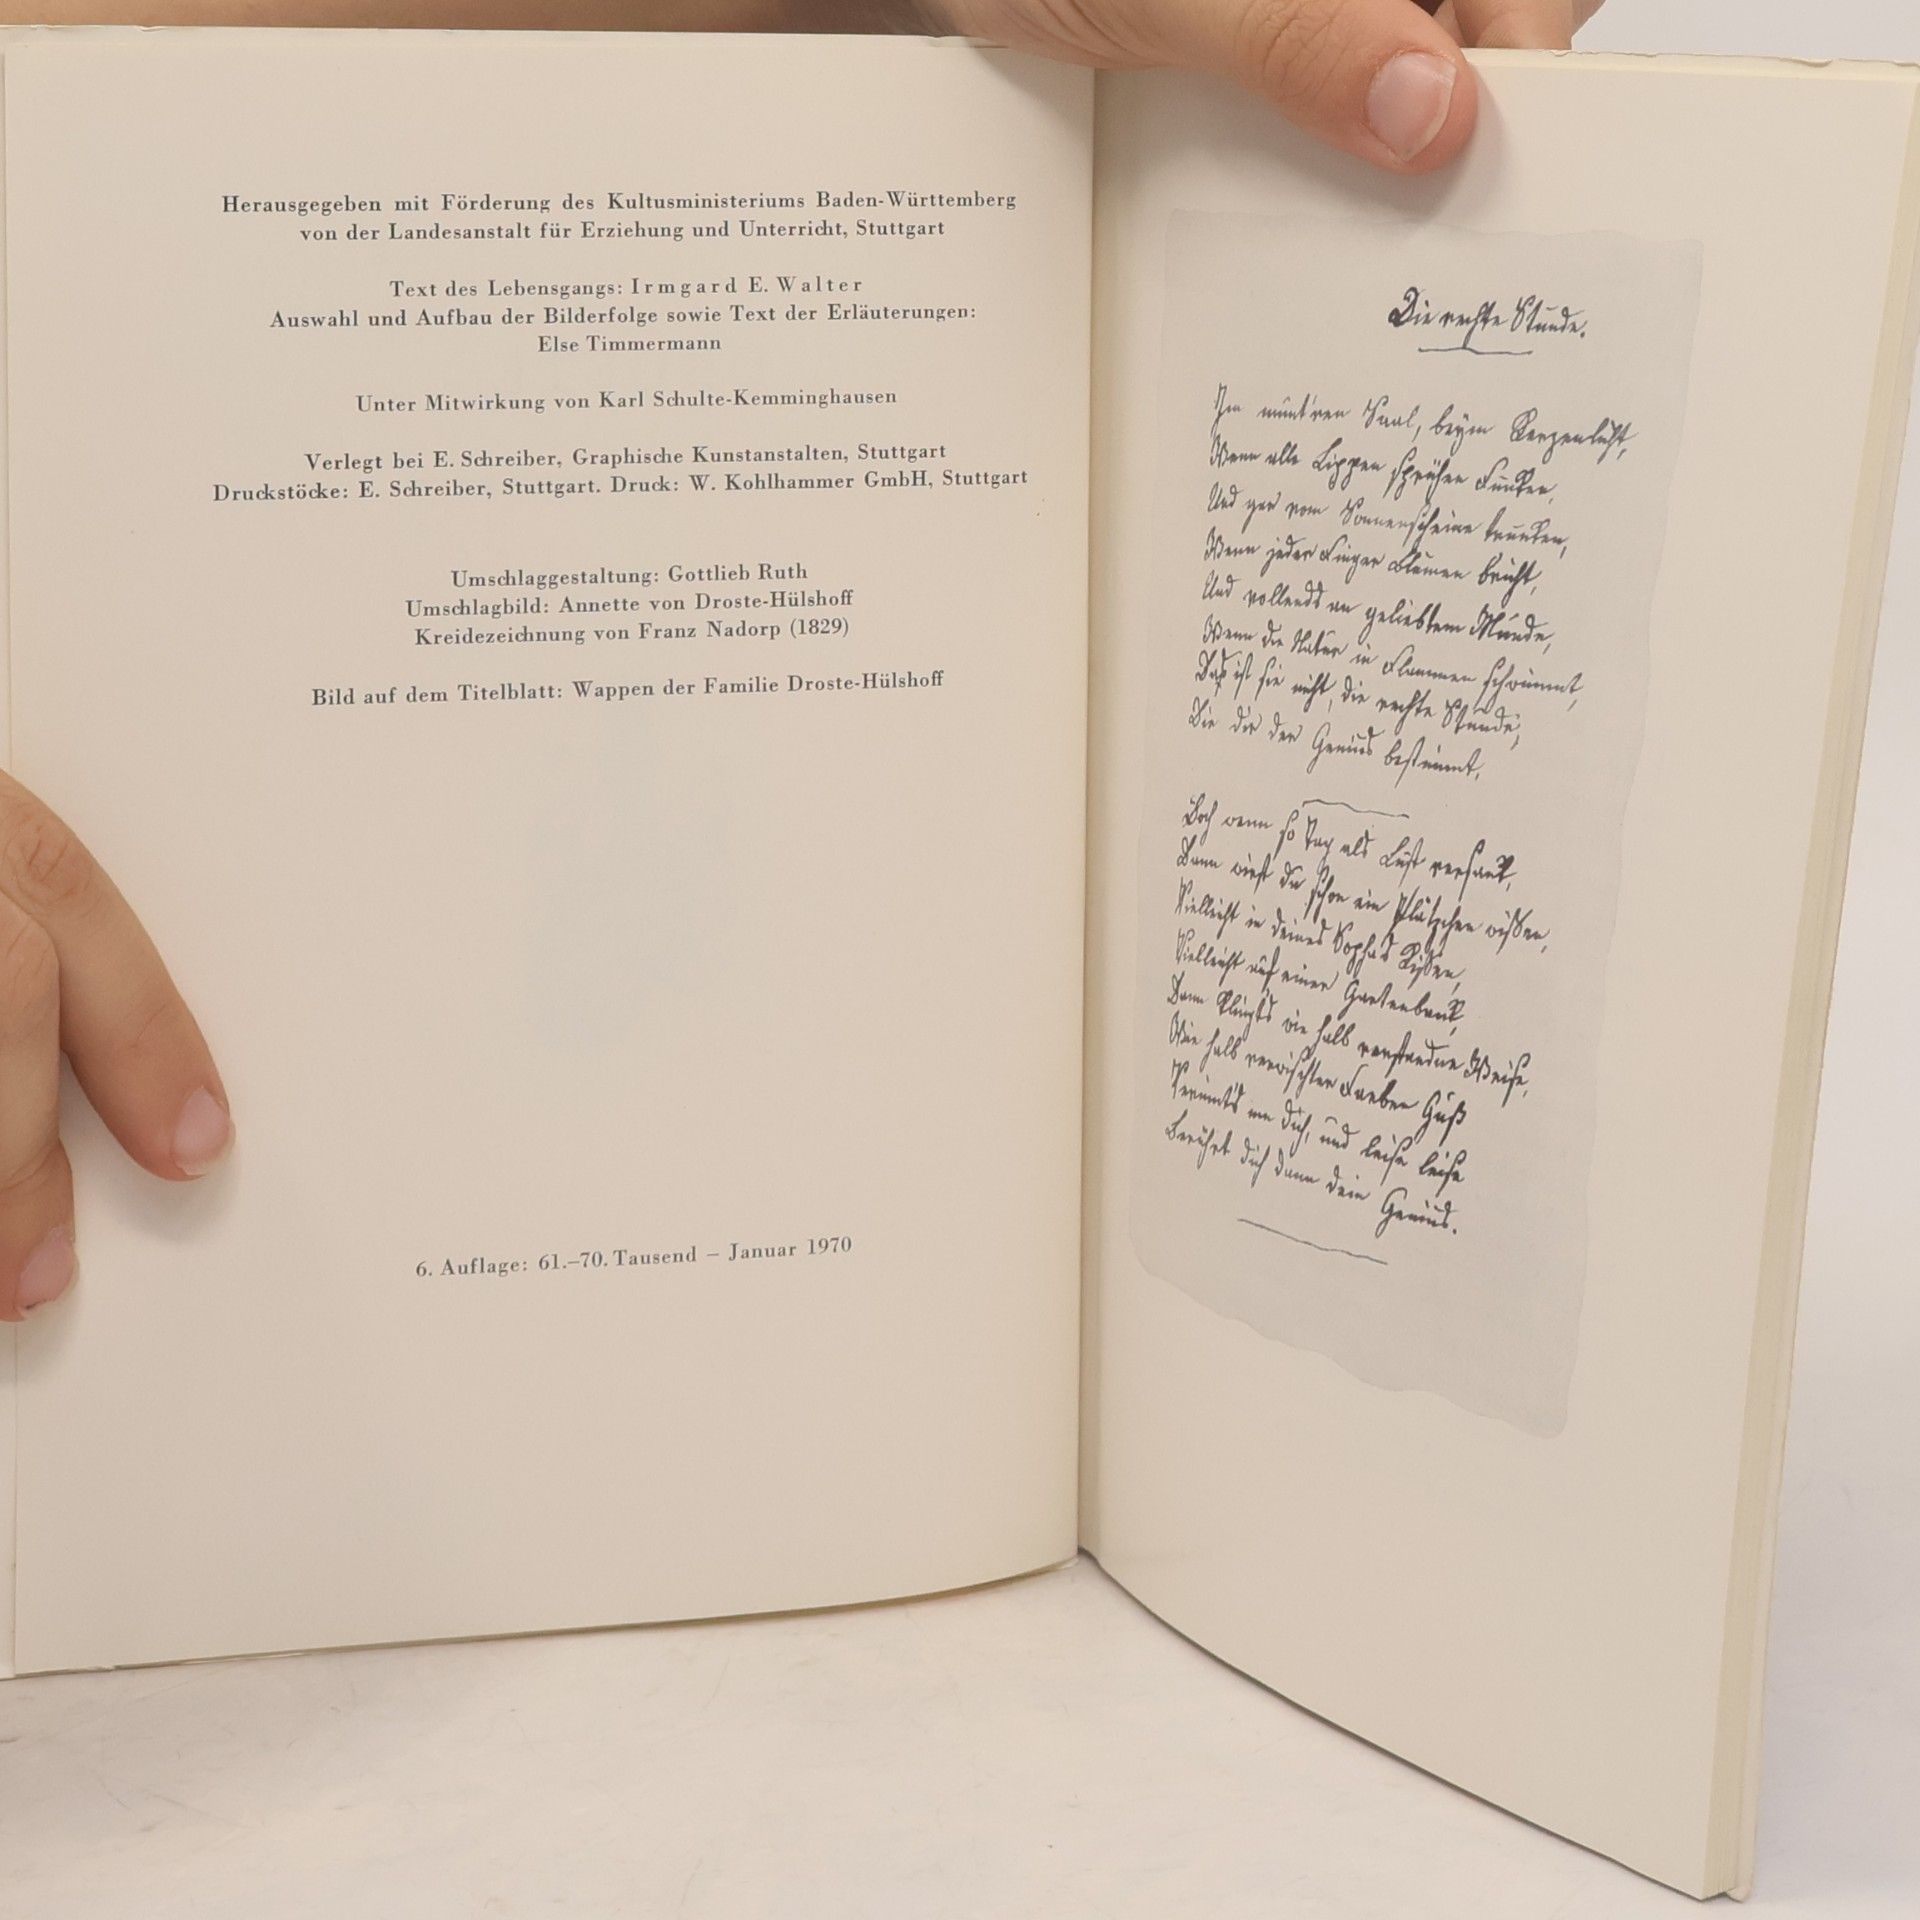 Herausgegeben mit Förderung des Kultusministeriums Baden-Württemberg
von der Landesanstalt für Erziehung und Unterricht, Stuttgart
Text des Lebensgangs: Irmgard E. Walter
Auswahl und Aufbau der Bilderfolge sowie Text der Erläuterungen:
Else Timmermann
Unter Mitwirkung von Karl Schulte-Kemminghausen
Verlegt bei E. Schreiber, Graphische Kunstanstalten, Stuttgart
Druckstöcke: E. Schreiber, Stuttgart. Druck: W. Kohlhammer GmbH, Stuttgart
Umschlaggestaltung: Gottlieb Ruth
Umschlagbild: Annette von Droste-Hülshoff
Kreidezeichnung von Franz Nadorp (1829)
Bild auf dem Titelblatt: Wappen der Familie Droste-Hülshoff
6. Auflage: 61.–70. Tausend – Januar 1970
Die rechte Stunde.
Im munt'ren Saal, beym Kerzenlicht,
Wenn alle Lippen sprühen Funken,
Und gar vom Sonnenscheine trunken,
Wenn jeder Finger Blumen bricht,
Und vollends an geliebtem Munde,
Wenn die Natur in Flammen schwimmt,
Das ist sie nicht, die rechte Stunde,
Die dir der Genius bestimmt.
Doch wenn so Tag als Lust versank,
Dann wirst du schon ein Plätzchen wissen,
Vielleicht in deines Sophas Kissen,
Vielleicht auf einer Gartenbank,
Dann klingts wie halb verstandne Weise,
Wie halb verwischter Farben Guß
Verrinnts um dich, und leise leise
Berührt dich dann dein Genius.